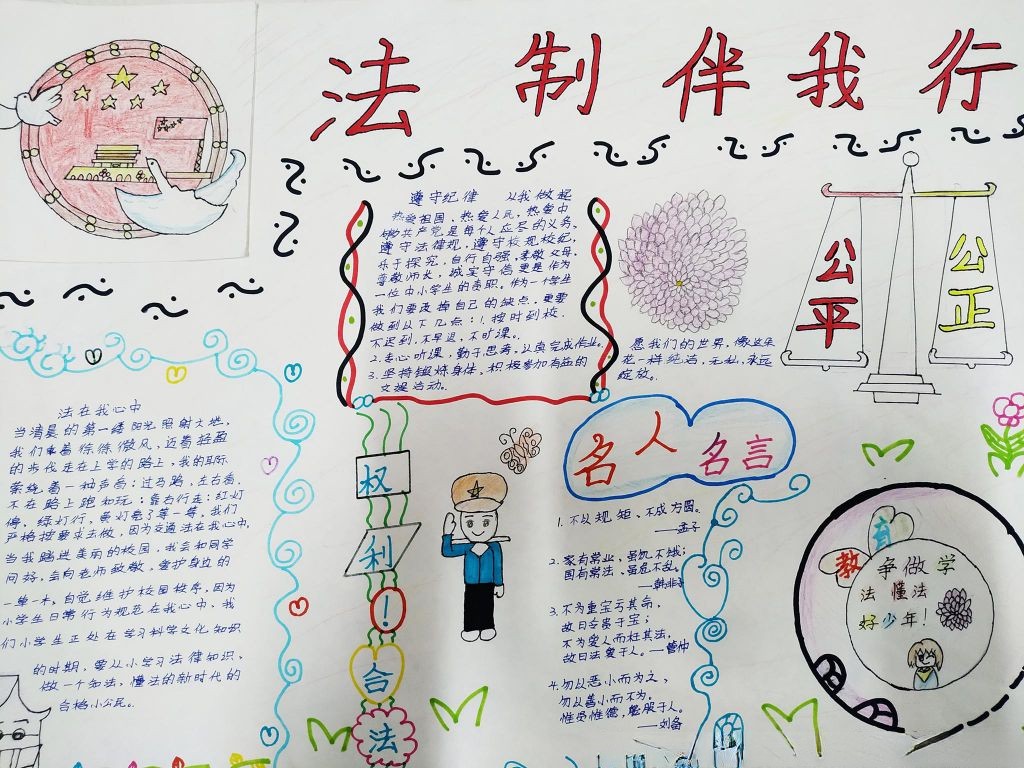 法制伴我行
遵守纪律 从我做起
热爱祖国，热爱人民，热爱中
国共产党是每个人应尽的义务。
遵守法律规，遵守校规校纪，
乐于探究，自行自强，孝敬父母，
尊敬师长，诚实守信更是作为
一位中小学生的高职。作为一个学生
我们要改掉自己的缺点，更要
做到以下几点：1.按时到校，
不迟到，不早退，不旷课。
2.专心听课，勤于思考，认真完成作业。
3.坚持锻炼身体，积极参加有益的
文娱活动。
愿我们的世界，像这朵
花一样纯洁，无私，永远
绽放。
公平
公正
法在我心中
当清晨的第一缕阳光照射大地，
我们乘着徐徐微风，迈着轻盈
的步伐走在上学的路上，我的耳际
萦绕着一种声音：过马路，左右看，
不在路上跑和玩；靠右行走；红灯
停，绿灯行，黄灯亮了等一等。我们
严格按要求去做，因为交通法在我心中。
当我踏进美丽的校园，我会和同学
问好，会向老师敬敬，爱护身边的
一草一木，自觉维护校园秩序，因为
小学生日常行为规范在我心中、我
们小学生正处在学习科学文化知识
的时期，要从小学习法律知识，
做一个知法，懂法的新时代的
合格小公民。
权
利
！
合
法
名人名言
1.不以规矩、不成方圆。
——孟子
2.家有常业，虽饥不饿；
国有常法，虽危不乱。
——韩非子
3.不为重宝亏其命，
故曰令贵于宝；
不为爱人而枉其法，
故曰法爱于人。——管仲
4.勿以恶小而为之，
勿以善小而不为。
惟贤惟德，能服于人。
——刘备
教育
争做学
法懂法
好少年！